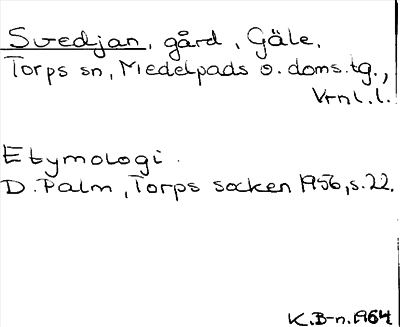 Svedjan, gård, Gäle,
Torps sn, Medelpads o. doms.tg.,
Vrnl.l.
Etymologi.
D. Palm, Torps socken 1956, s.22.
K.B-n. 1964